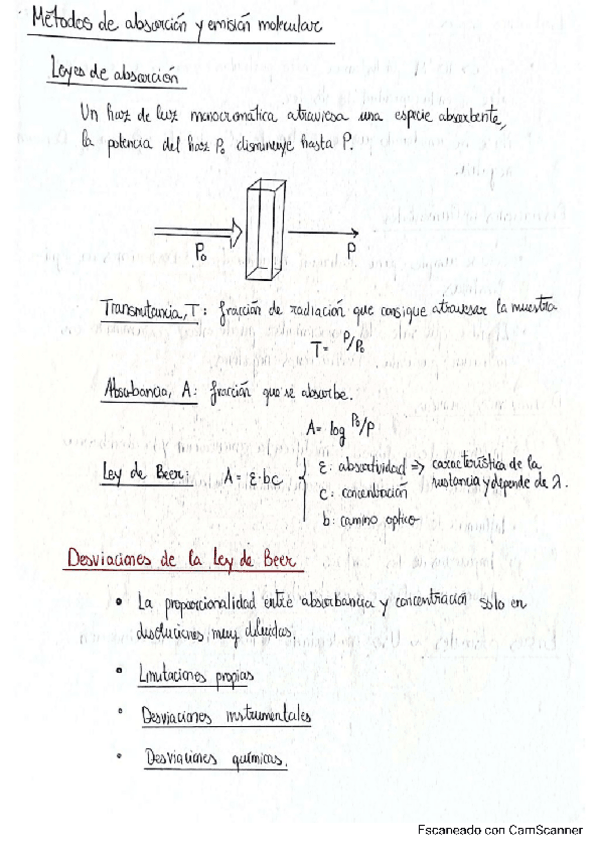 Métodos de absorción y emisión molecular
Leyes de absorción
Un haz de luz monocromática atraviesa una especie absorbente,
la potencia del haz P₀ disminuye hasta P.
P₀ P
Transmitancia, T: fracción de radiación que consigue atravesar la muestra
T = P/P₀
Absorbancia, A: fracción que se absorbe.
A = log P₀/P
Ley de Beer: A = ε·bc { ε: absortividad => característica de la
sustancia y depende de λ.
c: concentración
b: camino optico
Desviaciones de la Ley de Beer
• La proporcionalidad entre absorbancia y concentración solo en
disoluciones muy diluidas.
• Limitaciones propias
• Desviaciones instrumentales
• Desviaciones químicas.
Escaneado con CamScanner